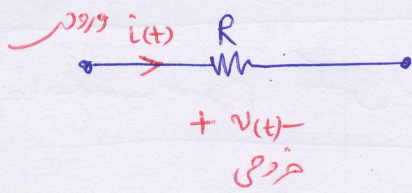 ورودی i(t) R
+ v(t) -
خروجی